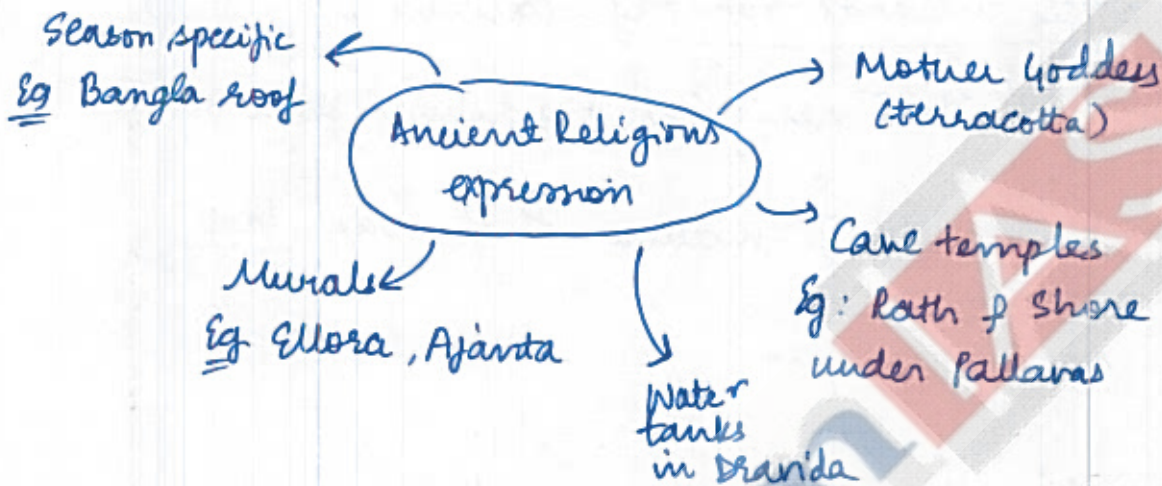 Season specific
Eg Bangla roof
Ancient Religious
expression
Mother Goddess
(terracotta)
Cave temples
Eg: Rath & Shore
under Pallavas
Murals
Eg Ellora, Ajanta
Water
tanks
in Dravida
IAS